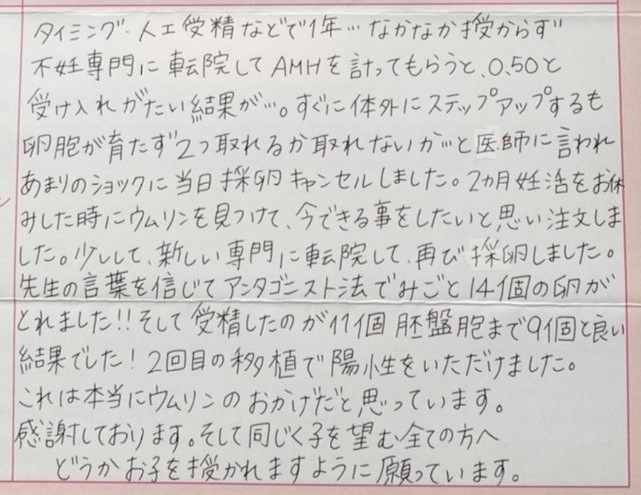 タイミング・人工受精などで1年…なかなか授からず
不妊専門に転院してAMHを計ってもらうと、0.50と
受け入れがたい結果が…。すぐに体外にステップアップするも
卵胞が育たず2つ取れるか取れないか…と医師に言われ
あまりのショックに当日採卵キャンセルしました。2カ月妊活をお休
みした時にウムリンを見つけて、今できる事をしたいと思い注文しま
した。少しして、新しい専門に転院して、再び採卵しました。
先生の言葉を信じてアンタゴニスト法でみごと14個の卵が
とれました!!そして受精したのが11個 胚盤胞まで9個と良い
結果でした!2回目の移植で陽性をいただけました。
これは本当にウムリンのおかげだと思っています。
感謝しております。そして同じく子を望む全ての方へ
どうかお子を授かれますように願っています。